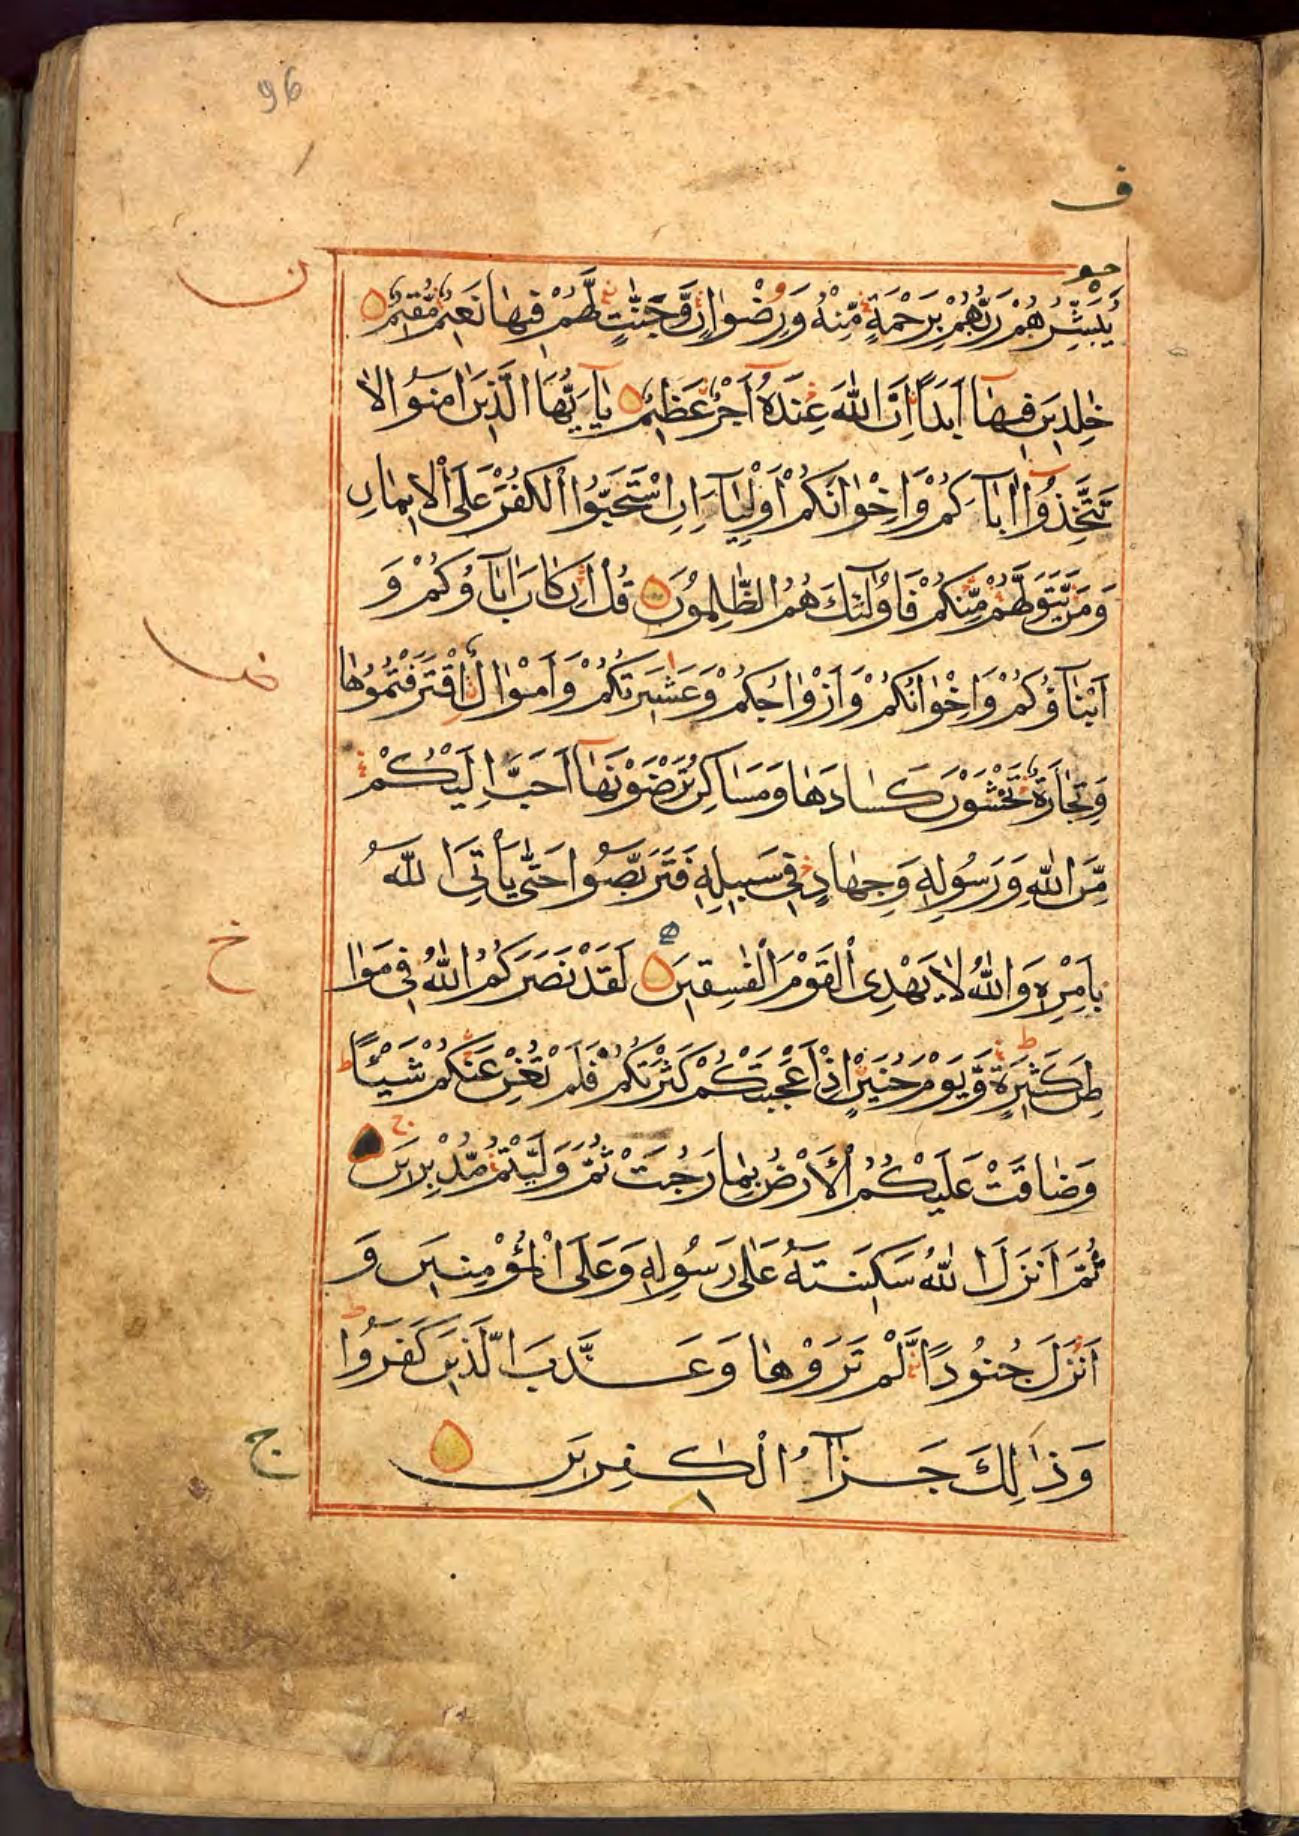 96
ف
يُبَشِّرُهُمْ رَبُّهُمْ بِرَحْمَةٍ مِّنْهُ وَرِضْوَانٍ وَّجَنّٰتٍ لَّهُمْ فِيهَا نَعِيْمٌ مُّقِيْمٌ
ن
خٰلِدِيْنَ فِيْهَآ اَبَدًا اِنَّ اللّٰهَ عِنْدَهٗٓ اَجْرٌ عَظِيْمٌ يٰٓاَيُّهَا الَّذِيْنَ اٰمَنُوا لَا
تَتَّخِذُوْٓا اٰبَآءَكُمْ وَاِخْوَانَكُمْ اَوْلِيَآءَ اِنِ اسْتَحَبُّوا الْكُفْرَ عَلَى الْاِيْمَانِ
وَمَنْ يَّتَوَلَّهُمْ مِّنْكُمْ فَاُولٰٓئِكَ هُمُ الظّٰلِمُوْنَ قُلْ اِنْ كَانَ اٰبَآؤُكُمْ وَ
اَبْنَآؤُكُمْ وَاِخْوَانُكُمْ وَاَزْوَاجُكُمْ وَعَشِيْرَتُكُمْ وَاَمْوَالُ اقْتَرَفْتُمُوْهَا
وَتِجَارَةٌ تَخْشَوْنَ كَسَادَهَا وَمَسَاكِنُ تَرْضَوْنَهَآ اَحَبَّ اِلَيْكُمْ
مِّنَ اللّٰهِ وَرَسُوْلِهٖ وَجِهَادٍ فِيْ سَبِيْلِهٖ فَتَرَبَّصُوْا حَتّٰى يَاْتِيَ اللّٰهُ
خ
بِاَمْرِهٖ وَاللّٰهُ لَا يَهْدِى الْقَوْمَ الْفٰسِقِيْنَ لَقَدْ نَصَرَكُمُ اللّٰهُ فِيْ مَوَا
طِنَ كَثِيْرَةٍ وَّيَوْمَ حُنَيْنٍ اِذْ اَعْجَبَتْكُمْ كَثْرَتُكُمْ فَلَمْ تُغْنِ عَنْكُمْ شَيْئًا
وَضَاقَتْ عَلَيْكُمُ الْاَرْضُ بِمَا رَحُبَتْ ثُمَّ وَلَّيْتُمْ مُّدْبِرِيْنَ
ثُمَّ اَنْزَلَ اللّٰهُ سَكِيْنَتَهٗ عَلٰى رَسُوْلِهٖ وَعَلَى الْمُؤْمِنِيْنَ وَ
اَنْزَلَ جُنُوْدًا لَّمْ تَرَوْهَا وَعَذَّبَ الَّذِيْنَ كَفَرُوْا
وَذٰلِكَ جَزَآءُ الْكٰفِرِيْنَ
ج